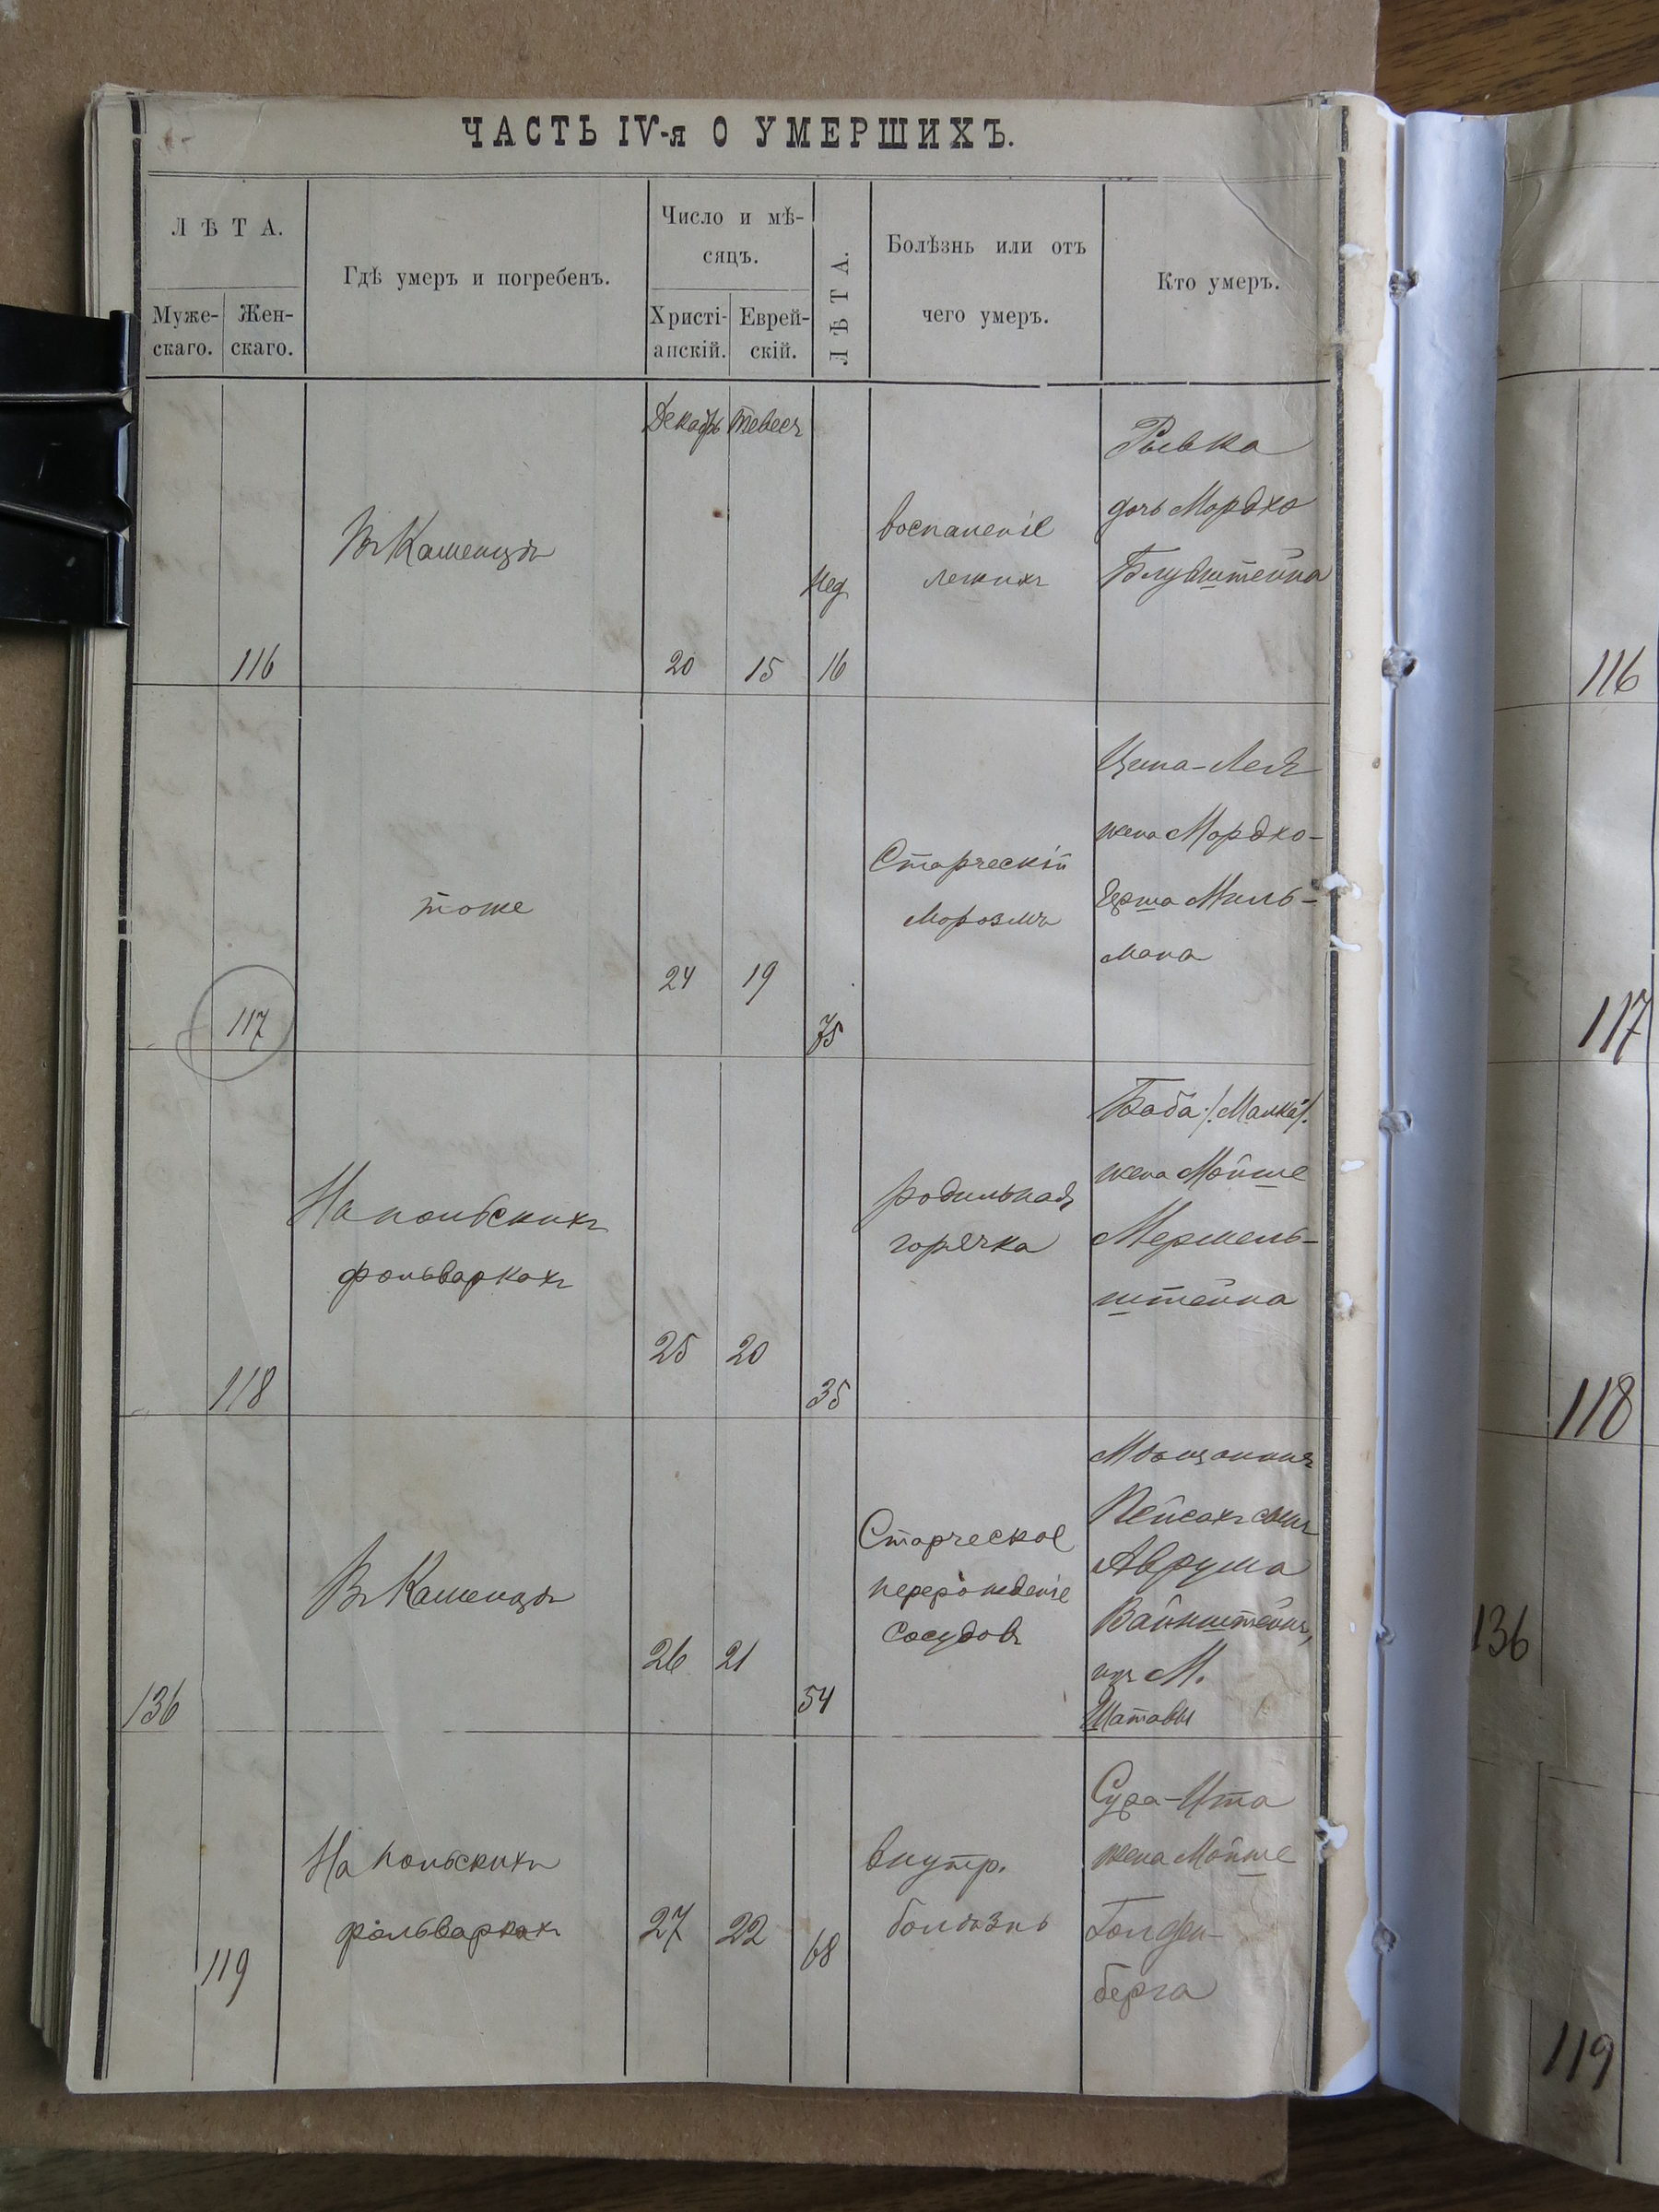 ЧАСТЬ IV-я О УМЕРШИХЪ.
ЛѢТА.
Муже-
скаго.
Жен-
скаго.
Гдѣ умеръ и погребенъ.
Число и мѣ-
сяцъ.
Христі-
анскій.
Еврей-
скій.
ЛѢТА.
Болѣзнь или отъ
чего умеръ.
Кто умеръ.
116
Въ Каменцѣ
Декабрь
Тевесъ
20
15
Нед
16
воспаленіе
легкихъ
Рывка
дочь Мордко
Блувштейна
117
тоже
24
19
75
Старческій
Морозмъ
Ципа-Лея
жена Мордко-
Герша Миль-
мана
118
На польскихъ
фольваркахъ
25
20
35
родильная
горячка
Баба /Малка/.
жена Мойше
Мермель-
штейна
136
Въ Каменцѣ
26
21
54
Старческое
перерожденіе
сосудовъ
Мѣщанинъ
Пейсахъ сынъ
Аврума
Вайнштейнъ,
изъ М.
Шатавы
119
На польскихъ
фольваркахъ
27
22
68
внутр.
болѣзнь
Сура-Ита
жена Мойше
Голден-
берга
116
117
118
136
119